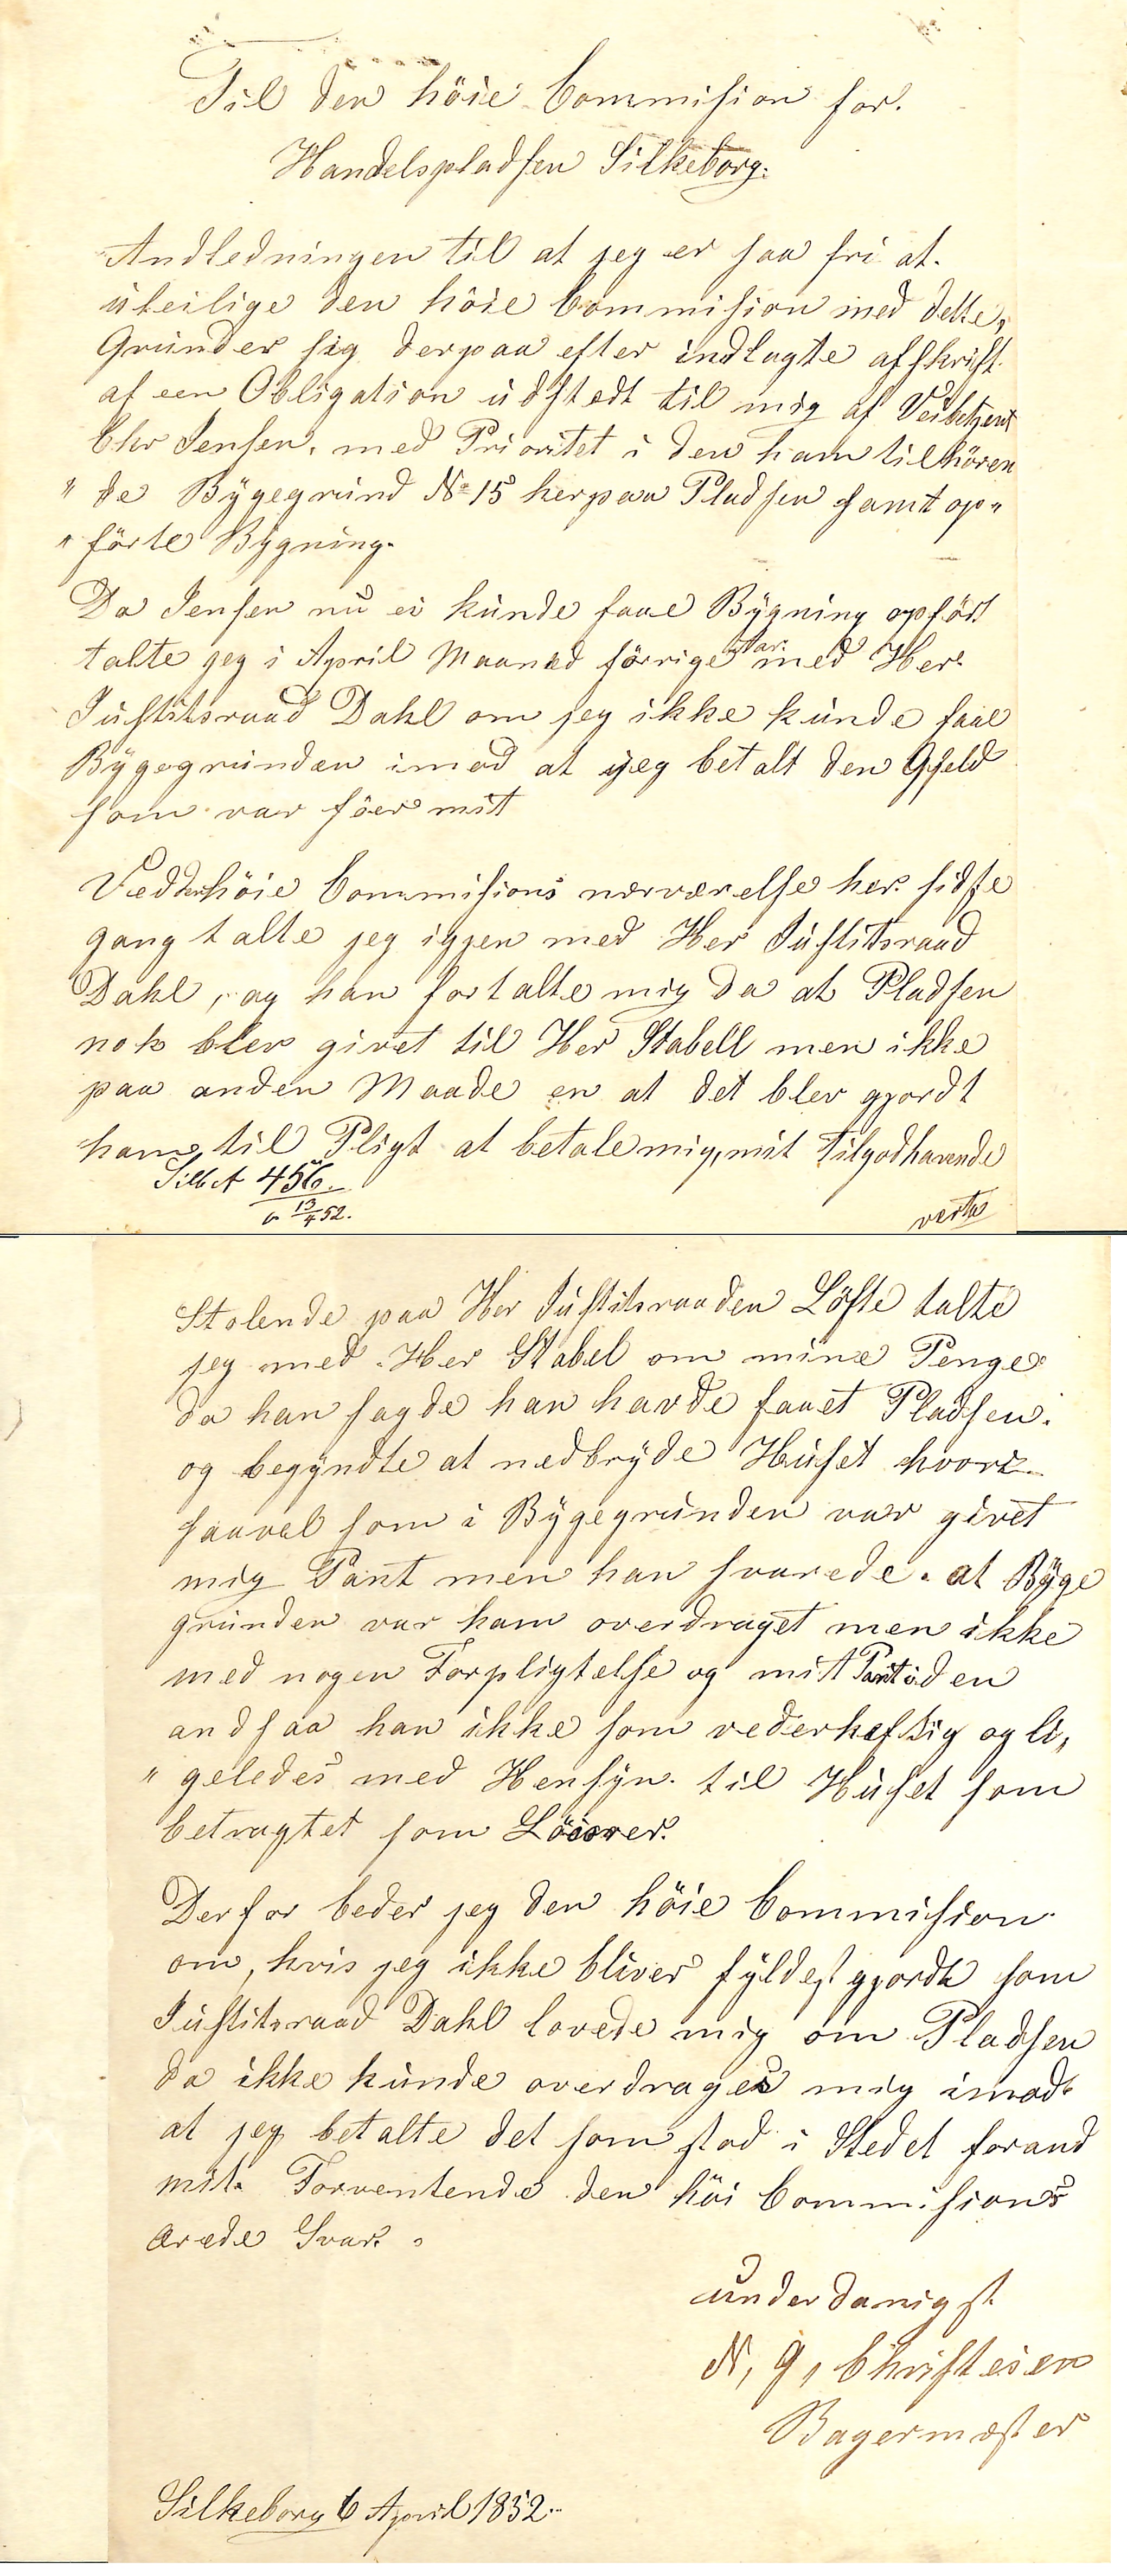 Til den höie Commision for.
Handelspladsen Silkeborg.
Andledningen til at jeg er saa fri at.
uleilige den höie Commision med dette,
Grunder sig derpaa efter indlagte afskrift
af een Obligation udstedt til mig af Veibetjent
Chr Jensen, med Prioritet i den ham tilhören
" de Bygegrund No 15 herpaa Pladsen samt op"
" förte Bygning.
Da Jensen nu ei kunde faae Bygning opfört
talte jeg i April Maaned förrige Aar med Her
Justitsraad Dahl om jeg ikke kunde faae
Bygegrunden imod at jeg betalt den Gjeld
som var föer mit
Ved den höie Commisions nærværelse her sidste
gang talte jeg igjen med Her Justitsraad
Dahl, og han fortalte mig da at Pladsen
nok blev givet til Her Stabell men ikke
paa anden Maade en at det blev gjordt
ham til Pligt at betale mig, mit tilgodhavende
Silb A 456.
13/4 52.
verte
Stolende paa Her Justitsraaden Löfte talte
jeg med Her Stabel om mine Penge
da han sagde han havde faaet Pladsen.
og begyndte at nedbryde Huset hvori
saavel som i Bygegrunden var givet
mig Pant men han svarede. at Byge
grunden var ham overdraget men ikke
med nogen Forpligtelse og mit Pant i den
andsaa han ikke som vederhæftig og li,
" geledes med Hensyn til Huset som
betragtet som Lösöver.
Derfor beder jeg den höie Commision
om, hvis jeg ikke bliver fyldestgjordt som
Justitsraad Dahl lovede mig om Pladsen
da ikke kunde overdrages mig imod
at jeg betalte det som stod i Stedet forand
mit. Forventende den höi Commisions
ærede Svar.
underdanigst
N, J, Christesen
Bagermester
Silkeborg 6 April 1852.